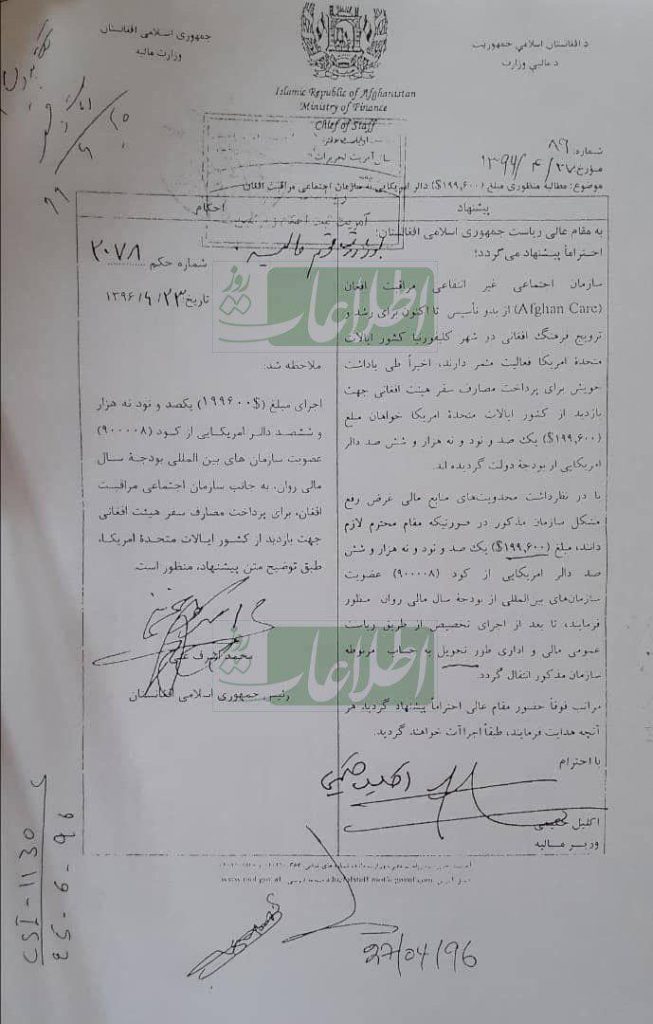 جمهوری اسلامی افغانستان
وزارت مالیه
د افغانستان اسلامي جمهوریت
د مالیې وزارت
Islamic Republic of Afghanistan
Ministry of Finance
Chief of Staff
شماره: ۸۹
مؤرخ: ۱۳۹۶/۴/۲۷
موضوع: مطالبه منظوری مبلغ (۱۹۹,۶۰۰$) دالر امریکایی به سازمان اجتماعی مراقبت افغان
پیشنهاد
به مقام عالی ریاست جمهوری اسلامی افغانستان:
احتراماً پیشنهاد می‌گردد!
سازمان اجتماعی غیر انتفاعی مراقبت افغان
(Afghan Care) از بدو تأسیس تا اکنون برای رشد و
ترویج فرهنگ افغانی در شهر کلیفورنیا کشور ایالات
متحدۀ امریکا فعالیت مثمر دارند، اخیراً طی یاداشت
خویش برای پرداخت مصارف سفر هیئت افغانی جهت
بازدید از کشور ایالات متحدۀ امریکا خواهان مبلغ
(۱۹۹,۶۰۰$) یک صد و نود و نه هزار و شش صد دالر
امریکایی از بودجۀ دولت گردیده اند.
با در نظرداشت محدودیت‌های منابع مالی غرض رفع
مشکل سازمان مذکور در صورتیکه مقام محترم لازم
دانند، مبلغ (۱۹۹,۶۰۰$) یک صد و نود و نه هزار و شش
صد دالر امریکایی از کود (۹۰۰۰۰۸) عضویت
سازمان‌های بین‌المللی از بودجۀ سال مالی روان منظور
فرمایند، تا بعد از اجرای تخصیص از طریق ریاست
عمومی مالی و اداری طور تحویل به حساب مربوطه
سازمان مذکور انتقال گردد.
مراتب فوقاً حضور مقام عالی احتراماً پیشنهاد گردید. هر
آنچه هدایت فرمایند، طبقاً اجراآت خواهند گردید.
با احترام
اکلیل حکیمی
اکلیل حکیمی
وزیر مالیه
احکام
شماره حکم ۲۰۷۸
تاریخ ۱۳۹۶/۶/۲۳
ملاحظه شد:
اجرای مبلغ (۱۹۹۶۰۰$) یکصد و نود نه هزار
و ششصد دالر امریکایی از کود (۹۰۰۰۰۸)
عضویت سازمان های بین المللی بودجۀ سال
مالی روان، به جانب سازمان اجتماعی مراقبت
افغان، برای پرداخت مصارف سفر هیئت افغانی
جهت بازدید از کشور ایالات متحدۀ امریکا،
طبق توضیح متن پیشنهاد، منظور است.
محمد اشرف غنی
رئیس جمهوری اسلامی افغانستان
اطلاعات روز
اطلاعات روز
CSI-1130
25-6-96
27/04/96